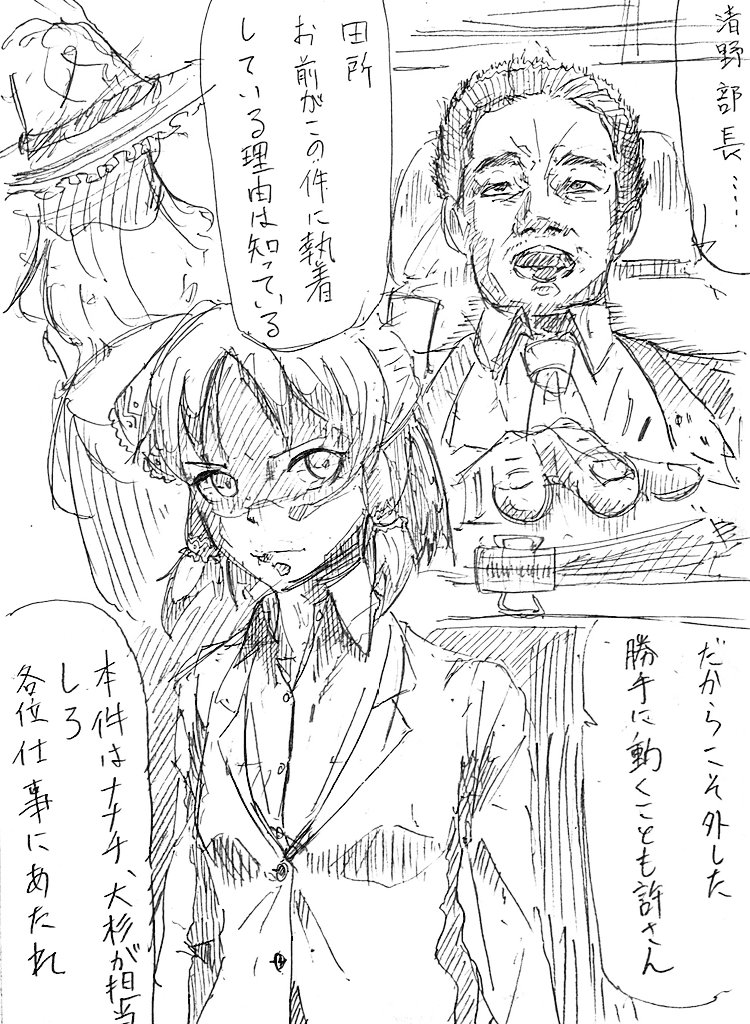 渚野部長……
田所
お前がこの件に執着
している理由は知っている
だからこそ外した
勝手に動くことも許さん
本件はナナチ、大杉が担当
しろ
各位仕事にあたれ